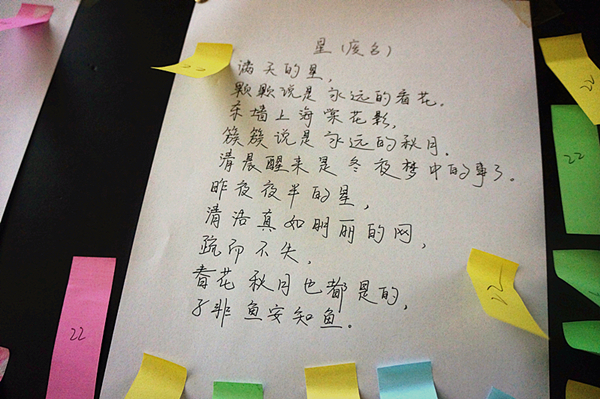 星（废名）
满天的星，
颗颗说是永远的春花。
东墙上海棠花影，
簇簇说是永远的秋月。
清晨醒来是冬夜梦中的事了。
昨夜夜半的星，
清洁真如明丽的网，
疏而不失，
春花秋月也都是的，
子非鱼安知鱼。
22
22
22